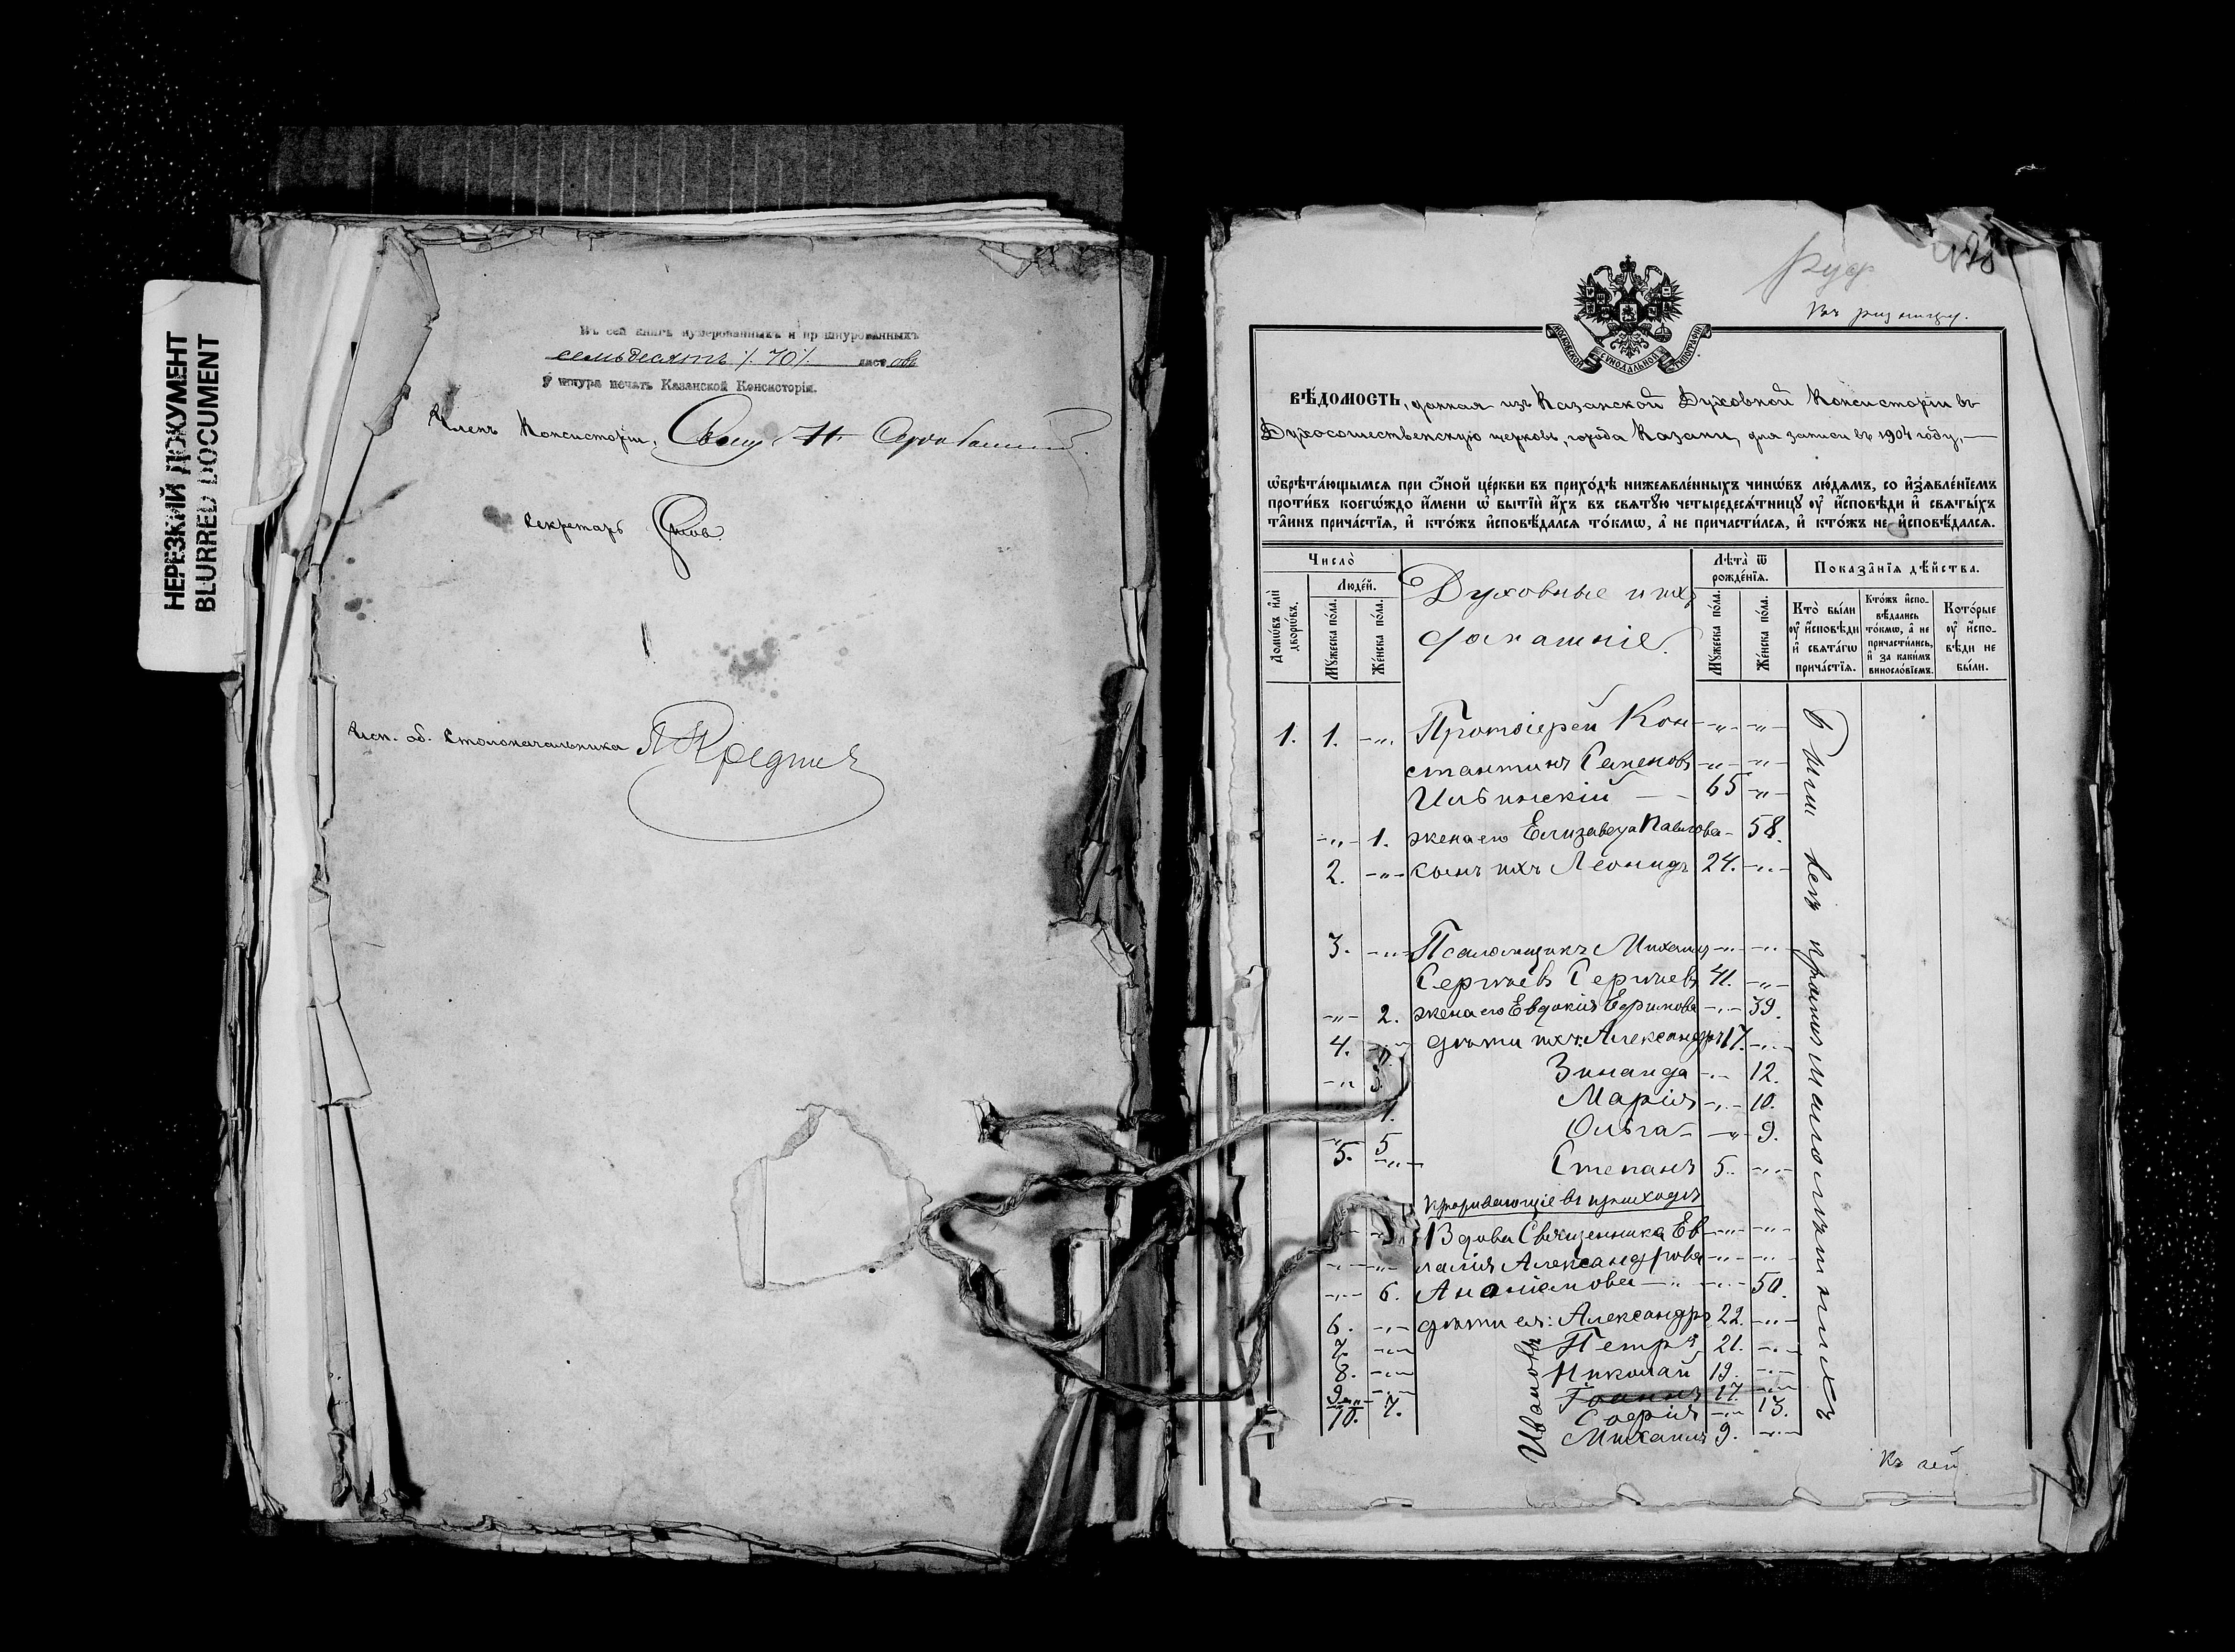 НЕРЕЗКИЙ ДОКУМЕНТ
BLURRED DOCUMENT
Въ сей книгѣ нумерованныхъ и прошнурованныхъ
семьдесятъ /. 70/. листовъ
У шнура печать Казанской Консисторіи.
Членъ Консисторіи, Свящ. Н.
Секретарь
Исп. об. Столоначальника
Въ ризницу.
МОСКОВСКОЙ СѴНОДАЛЬНОЙ ТИПОГРАФІИ
ВѢ́ДОМОСТЬ, данная изъ Казанской Духовной Консисторіи въ
Духосошественскую церковь, города Казани, для записи въ 1904 году,—
ѡ҆брѣта́ющымсѧ при ѻ҆́ной це́ркви въ прихо́дѣ нижеѧвле́нныхъ чинѡ́въ лю́дѧмъ, со и҆з̾ѧвле́нїемъ
проти́въ коегѡ́ждо и҆́мени ѡ҆ бытїѝ и҆́хъ въ свѧтꙋ́ю четыредесѧ́тницꙋ ᲂу҆ и҆́сповѣди и҆ свѧты́хъ
та̑инъ прича́стїѧ, и҆ кто́жъ и҆сповѣ́далсѧ то́кмѡ, а҆ не причасти́лсѧ, и҆ кто́жъ не и҆сповѣ́далсѧ.
Число̀
Домѡ́въ и҆лѝ дворѡ́въ.
Люде́й.
Мꙋ́жеска по́ла.
Же́нска по́ла.
Духовные и ихъ
домашніе.
Лѣта̀ ѿ рожде́нїѧ.
Мꙋ́жеска по́ла.
Же́нска по́ла.
Показа̑нїѧ дѣ́йства.
Кто̀ бы́ли ᲂу҆ и҆́сповѣди и҆ свѧта́гѡ прича́стїѧ.
Кто́жъ и҆спо-вѣ́дались то́кмѡ, а҆ не причасти́лись, и҆ за каки́мъ винослов́їемъ.
Кото́рые ᲂу҆ и҆́спо-вѣди не бы́ли.
1. 1. -„- Протоіерей Кон- -„- -„-
стантинъ Семеновъ -„- -„-
Ильинскій — 65 -„-
-„- 1. жена его Елизавета Павлова - 58.
2. -„- сынъ ихъ Леонидъ 24. -„-
3. -„- Псаломщикъ Михаилъ -„- -„-
Сергѣевъ Сергѣевъ 41. -„-
-„- 2. жена его Евдокія Ефимова -„- 39.
4. -„- дѣти ихъ: Александръ 17. -„-
-„- 3. Зинаида -„- 12.
Марія -„- 10.
-„- 5 Ольга -„- 9.
5. -„- Степанъ 5. -„-
проживающіе въ приходѣ
Вдова Священника Ев- -„- -„-
-„- -„- лалія Александрова -„- -„-
-„- 6. -„- 50.
6. -„- дѣти ея: Александръ 22. -„-
7. -„- Петръ 21. -„-
8. -„- Николай 19. -„-
9 -„- Іоаннъ 17. -„-
-„- 7. Софія -„- 13.
10. Михаилъ 9. -„-
Ивановы
Были всѣ кромѣ малолѣтнихъ